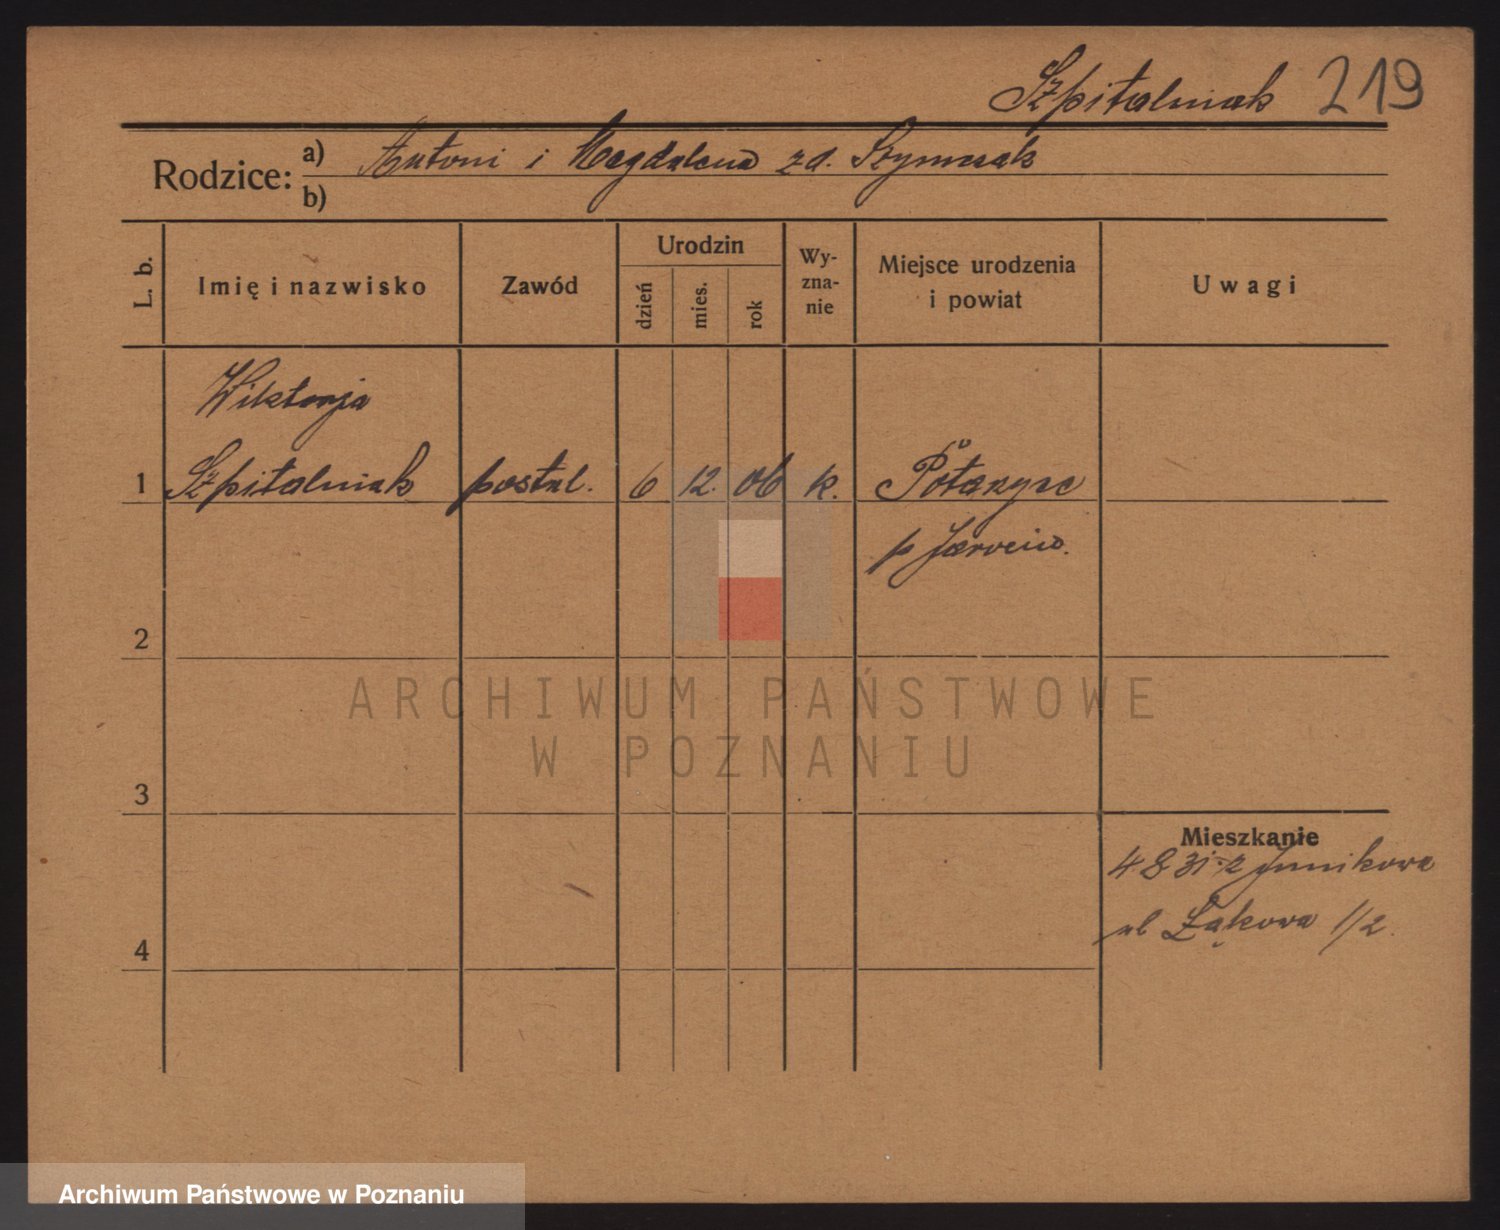 Szpitalniak 219
Rodzice: a) Antoni i Magdalena zd. Szymczak
b)
L. b. Imię i nazwisko Zawód Urodzin dzień mies. rok Wy-zna-nie Miejsce urodzenia i powiat Uwagi
Wiktorja
1 Szpitalniak postul. 6 12. 06 k. Potarzyce
p Jarocin.
2
3
Mieszkanie
4 8 31 z Junikowa
ul Łąkowa 1/2.
4
ARCHIWUM PAŃSTWOWE
W POZNANIU
Archiwum Państwowe w Poznaniu